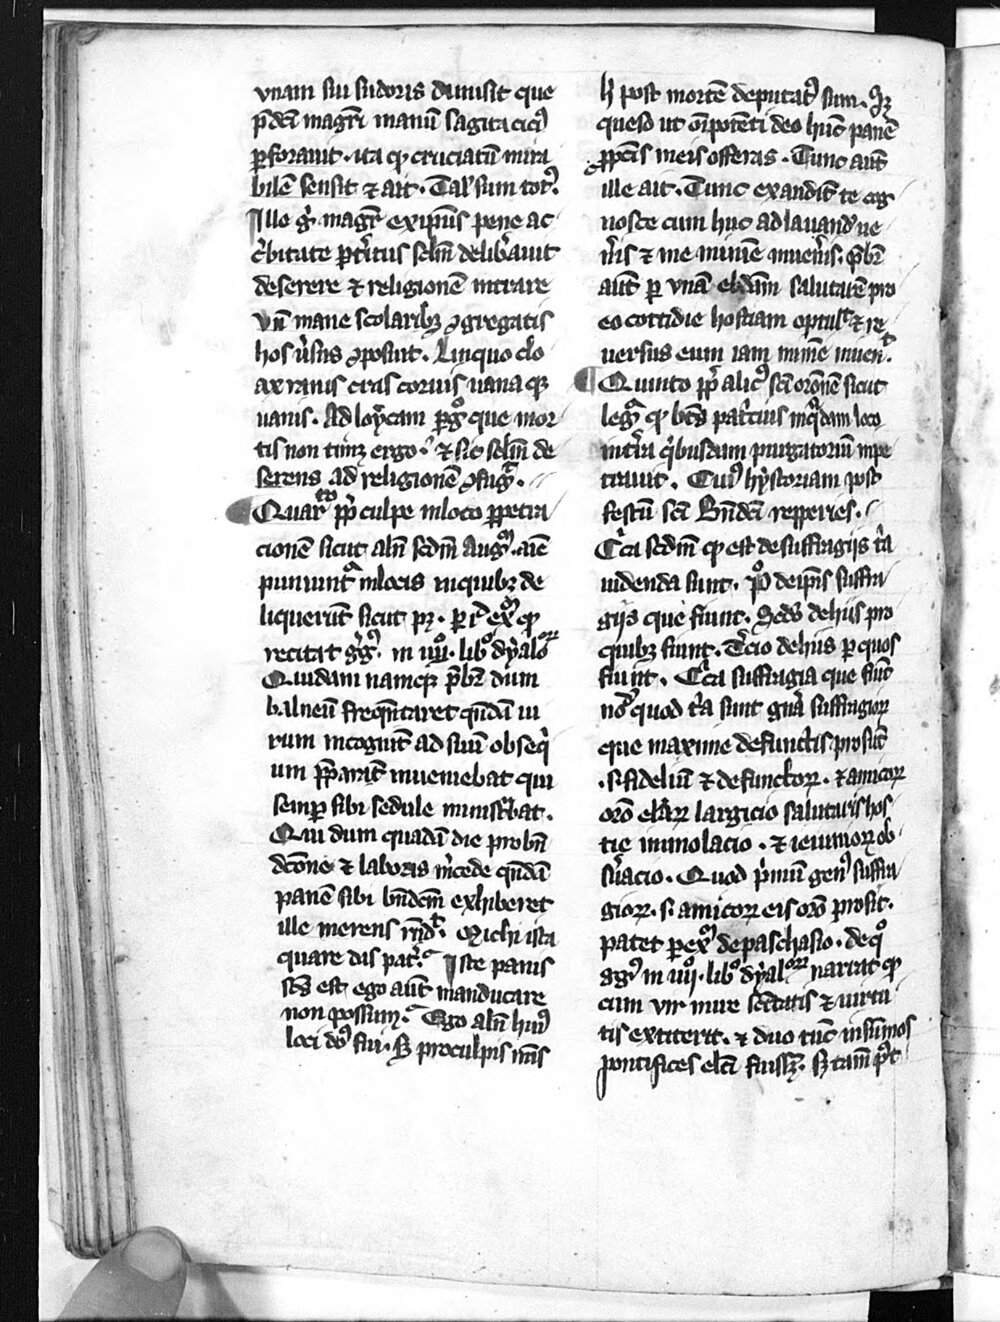 vnam sui sudoris dimisit que
p̄dc̄i magr̄i manū sagita cicꝰ
ꝑforauit · ita ꝙ cruciatū mira
bilē sensit ⁊ ait · Tal̕ sum totꝰ.
Ille gͦ magr̄ expauꝰ pene ac
c̕bitate ꝑt̕ritus sclm̄ delib̕auit
deserere ⁊ religionē intrare
Vn̄ mane scolaribꝫ ꝯgregatis
hos v̕sus ꝯposuit. Linquo clo
ax ranis cras coruis uana qꝫ
uanis. Ad loycam ꝑgͦ que mor
tis non timꝫ ergo · ⁊ sic sclm̄ de
serens ad religionē ꝯfugͣ.
Quarto pp̄ culpe in loco ꝑpetra
cionē sicut aliī scdm̄ Augꝰ. aīe
puniuntᷣ in locis in quibꝫ de
liquerūt sicut pꝫ. ꝑ ī exͦ qͩ
recitat g̕gꝰ. in iiijͦ. libͦ dyaloꝝ
Quidam namqꝫ pb̄r dum
balneū freqn̄taret qn̄dā ui
rum incognitū ad suū obseq̕
um p̄paratū inueniebat qui
semꝑ sibi sedule minist̕bat.
Qui dum quadā die pro bn̄
dc̄one ⁊ laboris m̕cede qn̄dā
panē sibi bn̄dcm̄ exhiberet
ille merens rn̄dͭ. Michi ista
quare das patͬ. Iste panis
sc̄s est ego aūt manducare
non possum. Ego alīn huiꝰ
loci dn̄s fui. Sꝫ pro culpis meīs
h̕ post mortē deputatꝰ sum. Sꝫ
queso ut oīpotenti deo hūc panē
ꝓ pctīs meis offeras. Tunc aūt
ille ait. Tunc exauditū te cog
nosce cum huc ad lauandū ue
n̕is ⁊ me minīe inuen̕is. pb̄r
aūt ꝑ vnā ebdom̄ salutarē pro
eo cottidie hostiam optulit ⁊ re
uersus eum iam minīe inuenͭ.
Quinto pp̄ alicꝰ sc̄i orōnē sicut
legͣ ꝙ bt̄s patͥcius in q̕dam loco
int̕ra q̕busdam purgatoriū inpe
trauit. Cuiꝰ hystoriam post
festū sc̄i Bn̄dc̄i reperies.
Cͥca scdm̄ ꝙ est de suffragijs tͥa
uidenda sunt. Pͦ de ipīs suffra
gijs que fiunt. Scdͦ de hijs pro
quibꝫ fiunt. Tc̕io de hijs ꝑ quos
fiunt. Cͥca suffragia que fiūt
nōdͣ quod tͥa sunt gn̄a suffragioꝝ
que maxime defunctis prosūt
.s. fideliū ⁊ defunctoꝝ. ⁊ amicoꝝ
orō eleīaꝝ largicio salutaris hos
tie immolacio. ⁊ ieiunioꝝ ob
s̕uacio. Quod p̕mū genꝰ suffra
gioꝝ .s. amicoꝝ eis orō prosit.
patet ꝑ exͫ de paschasio. de qͦ
g̕gꝰ in iiijͦ. libͦ dyaloꝝ narrat ꝙ
cum vir mire sc̄itatis ⁊ uirtu
tis extiterit. ⁊ duo tūc in sūmos
pontifices elc̄i fuissꝫ. Sꝫ tam̄ pͭ